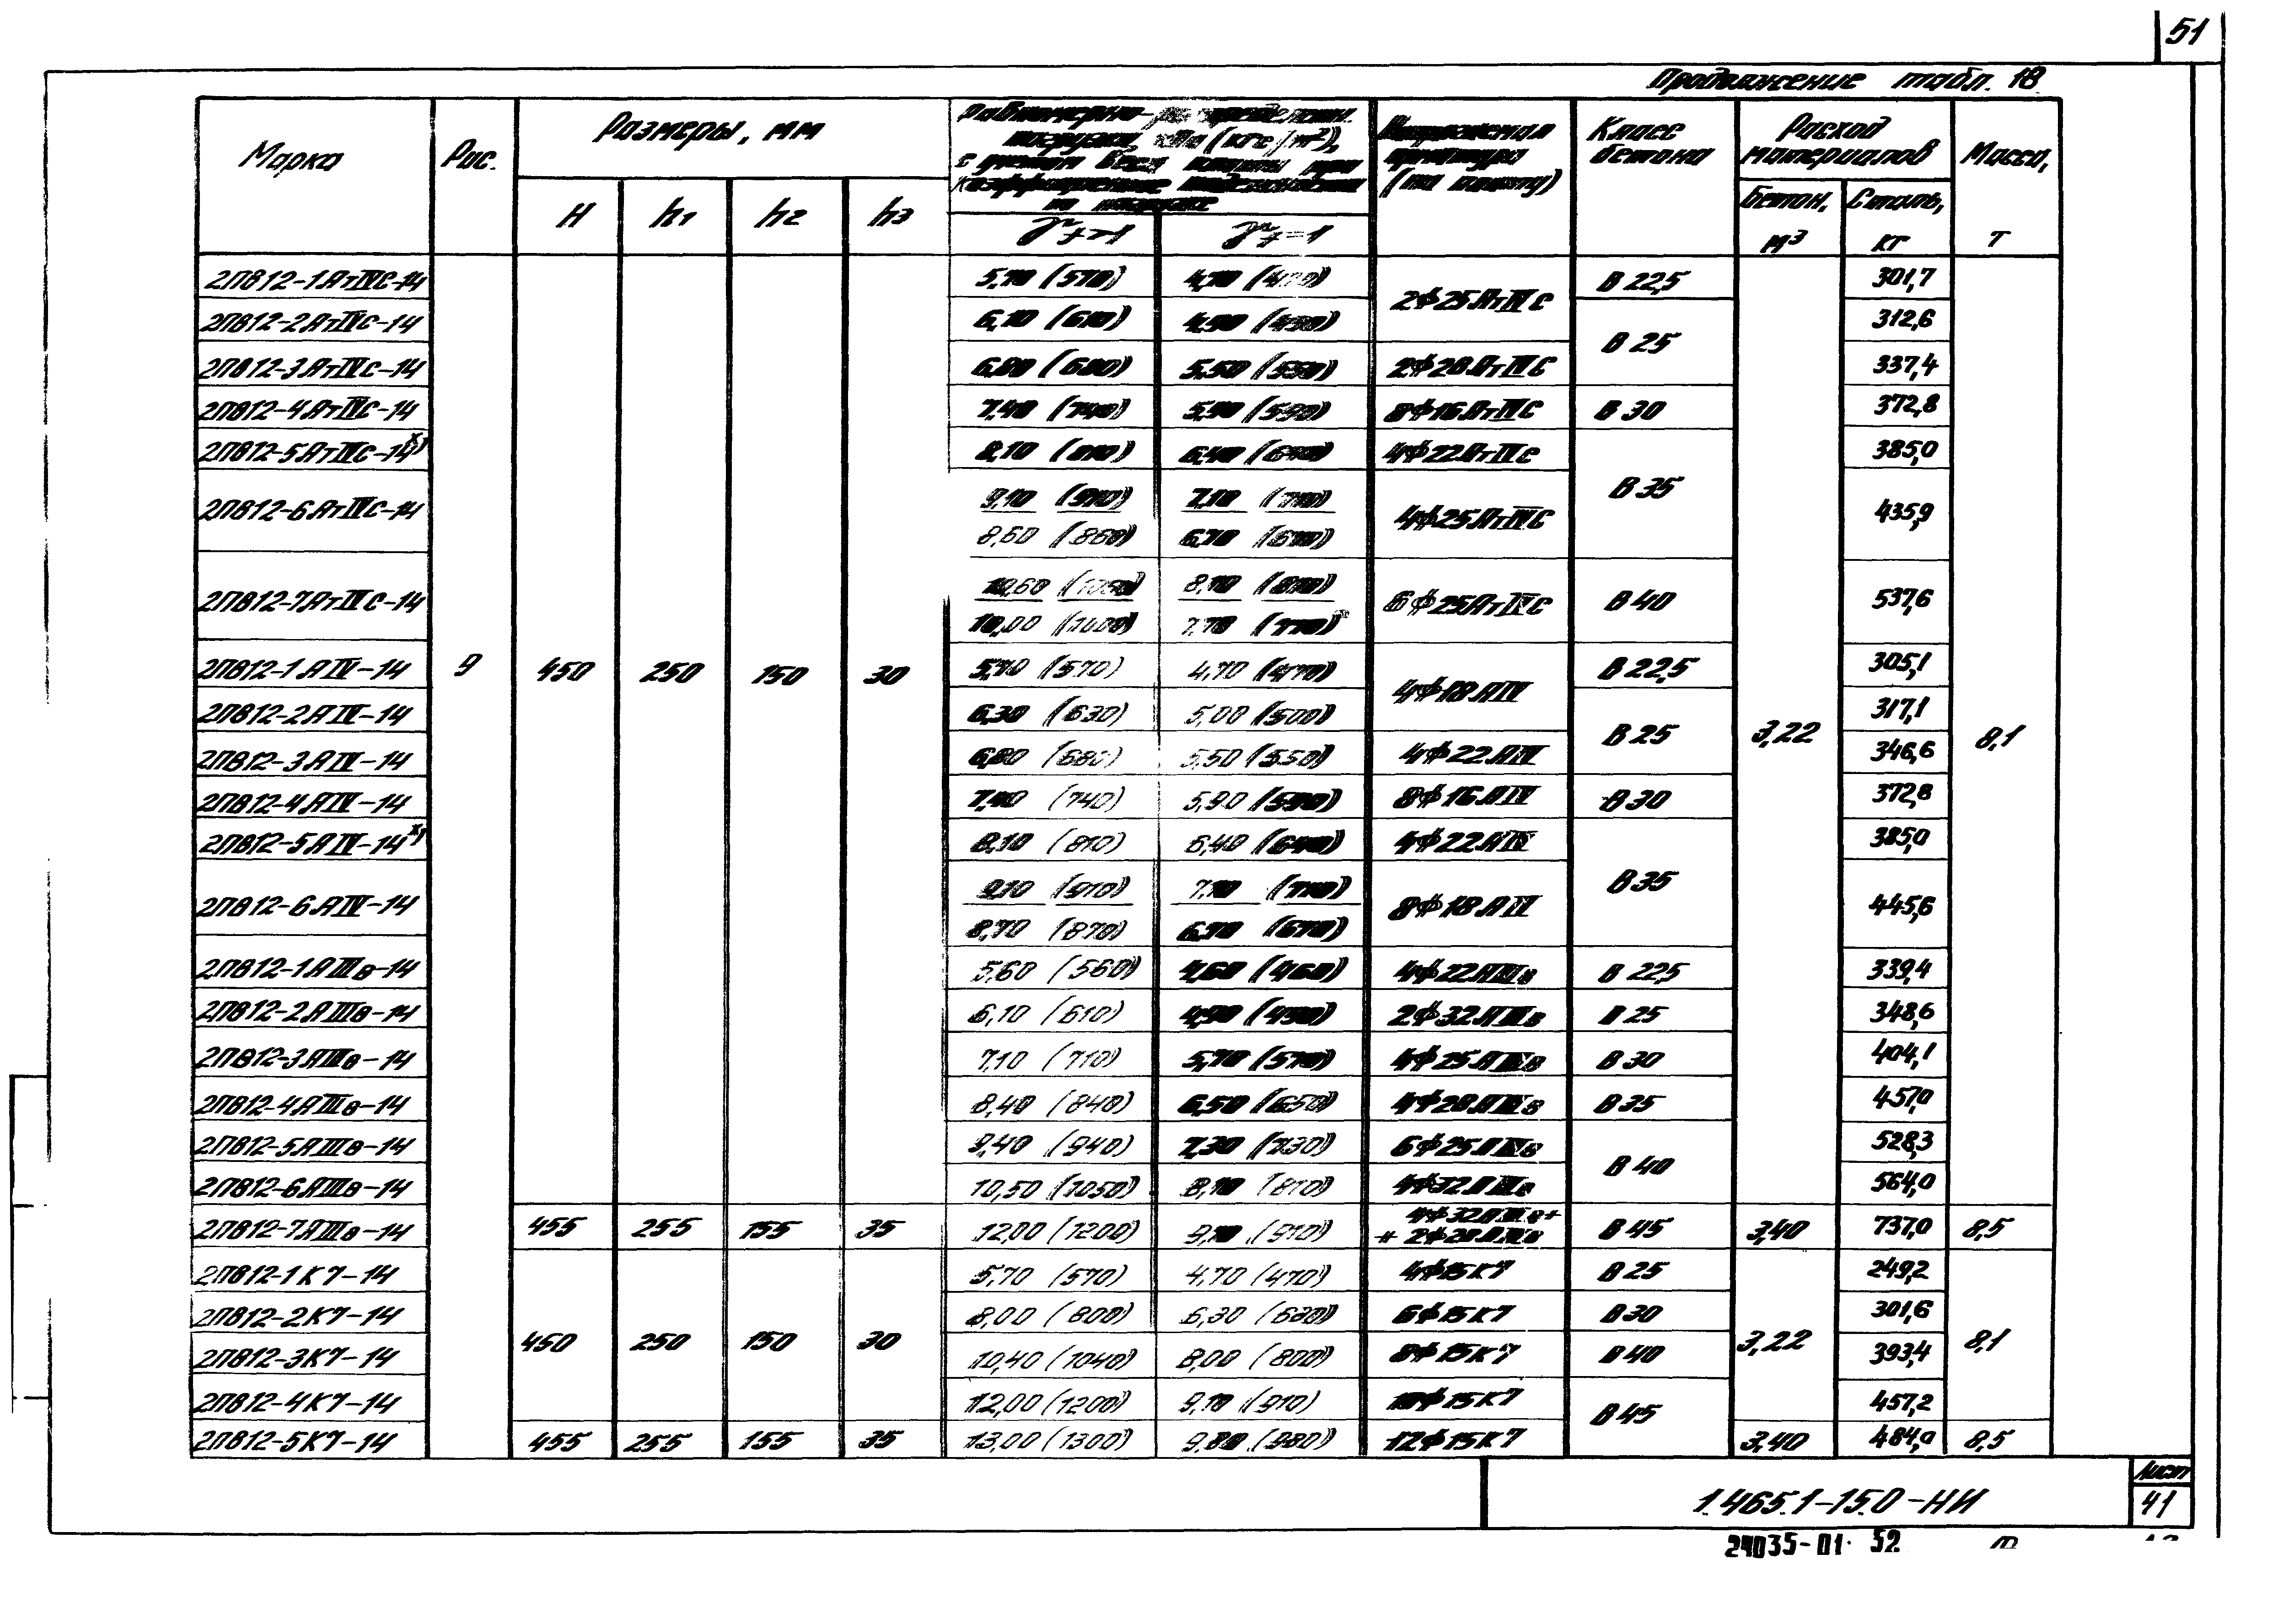 51
Продолжение табл. 18
Марка Рис. Размеры, мм Равномерно-распределенн. Напрягаемая Класс Расход Масса,
нагрузка, кПа (кгс/м²), арматура бетона материалов
с учетом веса плиты при (на плиту)
коэффициенте надежности Бетон, Сталь,
по нагрузке
H h1 h2 h3 γf>1 γf=1 м³ кг т
2ПВ12-1АтIVС-14 5,70 (570) 4,70 (470) 2ф25АтIVС В 22,5 301,7
2ПВ12-2АтIVС-14 6,10 (610) 4,90 (490) В 25 312,6
2ПВ12-3АтIVС-14 6,80 (680) 5,50 (550) 2ф28АтIVС 337,4
2ПВ12-4АтIVС-14 7,40 (740) 5,90 (590) 8ф16АтIVС В 30 372,8
2ПВ12-5АтIVС-14х) 8,10 (810) 6,40 (640) 4ф22АтIVС В 35 385,0
2ПВ12-6АтIVС-14 9,10 (910) 7,10 (710) 4ф25АтIVС 435,9
8,60 (860) 6,70 (670)
2ПВ12-7АтIVС-14 10,60 (1060) 8,10 (810) 6ф25АтIVС В 40 537,6
10,00 (1000) 7,70 (770)
2ПВ12-1АIV-14 9 450 250 150 30 5,70 (570) 4,70 (470) 4ф18АIV В 22,5 305,1
2ПВ12-2АIV-14 6,30 (630) 5,00 (500) В 25 3,22 317,1 8,1
2ПВ12-3АIV-14 6,80 (680) 5,50 (550) 4ф22АIV 346,6
2ПВ12-4АIV-14 7,40 (740) 5,90 (590) 8ф16АIV В 30 372,8
2ПВ12-5АIV-14х) 8,10 (810) 6,40 (640) 4ф22АIV В 35 385,0
2ПВ12-6АIV-14 9,10 (910) 7,10 (710) 8ф18АIV 445,6
8,70 (870) 6,70 (670)
2ПВ12-1АIIIв-14 5,60 (560) 4,60 (460) 4ф22АIIIв В 22,5 339,4
2ПВ12-2АIIIв-14 6,10 (610) 4,90 (490) 2ф32АIIIв В 25 348,6
2ПВ12-3АIIIв-14 7,10 (710) 5,70 (570) 4ф25АIIIв В 30 404,1
2ПВ12-4АIIIв-14 8,40 (840) 6,50 (650) 4ф28АIIIв В 35 457,0
2ПВ12-5АIIIв-14 9,40 (940) 7,30 (730) 6ф25АIIIв В 40 528,3
2ПВ12-6АIIIв-14 10,50 (1050) 8,10 (810) 4ф32АIIIв 564,0
2ПВ12-7АIIIв-14 455 255 155 35 12,00 (1200) 9,10 (910) 4ф32АIIIв+ В 45 3,40 737,0 8,5
+ 2ф28АIIIв
2ПВ12-1К7-14 5,70 (570) 4,70 (470) 4ф15К7 В 25 249,2
2ПВ12-2К7-14 8,00 (800) 6,30 (630) 6ф15К7 В 30 301,6
2ПВ12-3К7-14 450 250 150 30 10,40 (1040) 8,00 (800) 8ф15К7 В 40 3,22 393,4 8,1
2ПВ12-4К7-14 12,00 (1200) 9,10 (910) 10ф15К7 В 45 457,2
2ПВ12-5К7-14 455 255 155 35 13,00 (1300) 9,80 (980) 12ф15К7 3,40 484,0 8,5
1.465.1-15.0-НИ
Лист
41
24035-01 52